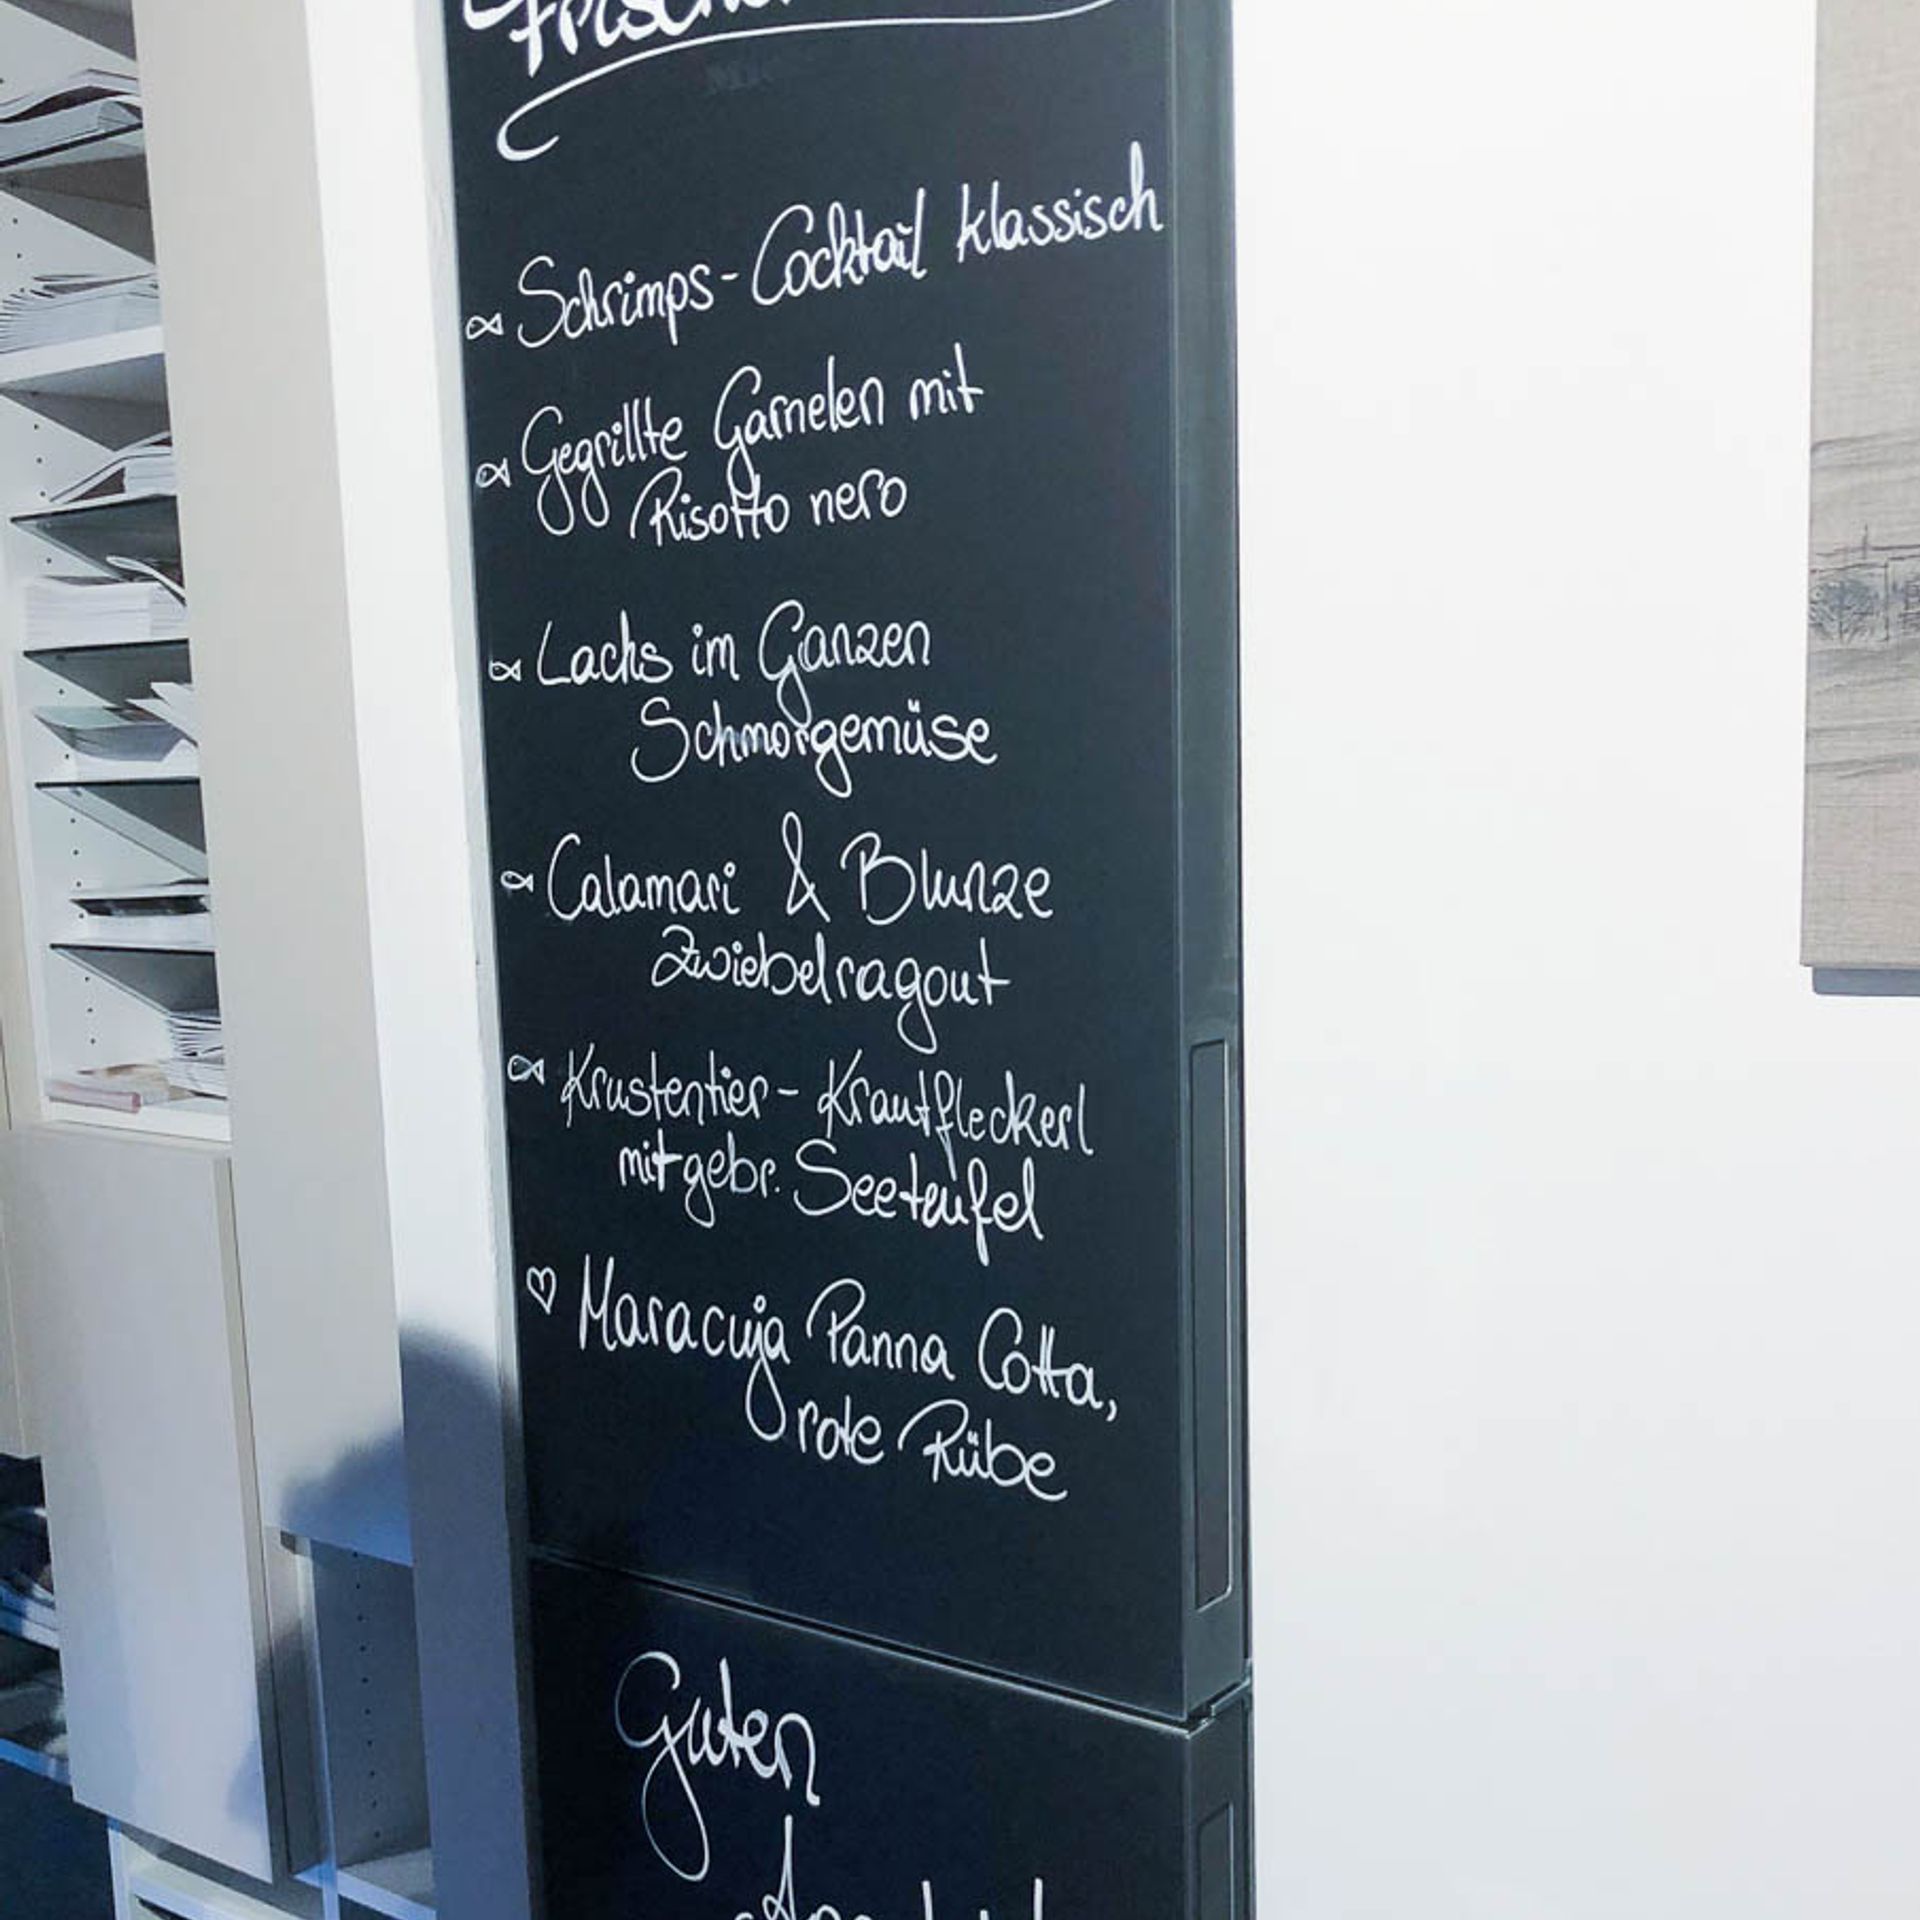 Schrimps-Cocktail klassisch
Gegrillte Garnelen mit
Risotto nero
Lachs im Ganzen
Schmorgemüse
Calamari & Blunze
Zwiebelragout
Krustentier-Krautfleckerl
mit gebr. Seeteufel
Maracuja Panna Cotta,
rote Rübe
Guten